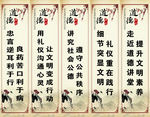 道德
提升文明素养
走近道德讲堂
道德
礼仪重在践行
细节突显文明
道德
遵守公共秩序
讲究社会公德
道德
让文明变成行动
用礼仪沟通心灵
道德
良药苦口利于病
忠言逆耳利于行